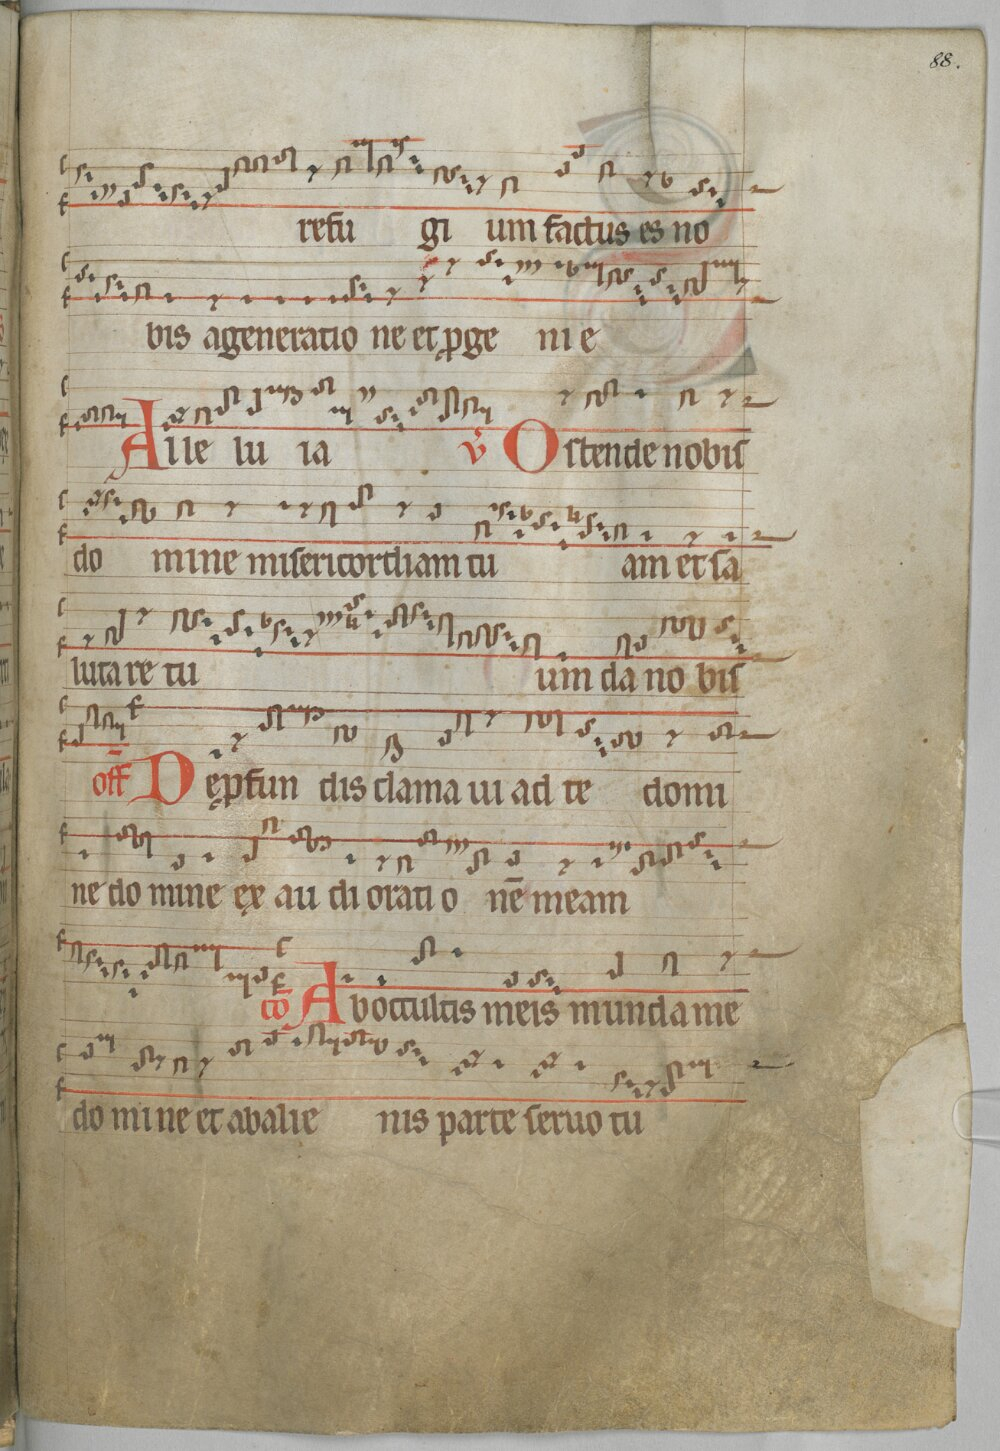 88.
refu gi um factus es no
bis ageneratio ne et ꝑge ni e
Alle lu ia v̄ Ostende nobis
do mine misericordiam tu am et sa
lutare tu um da no bis
off̄ De ꝓfun dis clama ui ad te domi
ne do mine ex au di orati o nē meam
cō Aboccultis meis munda me
do mi ne et abalie nis parte seruo tu